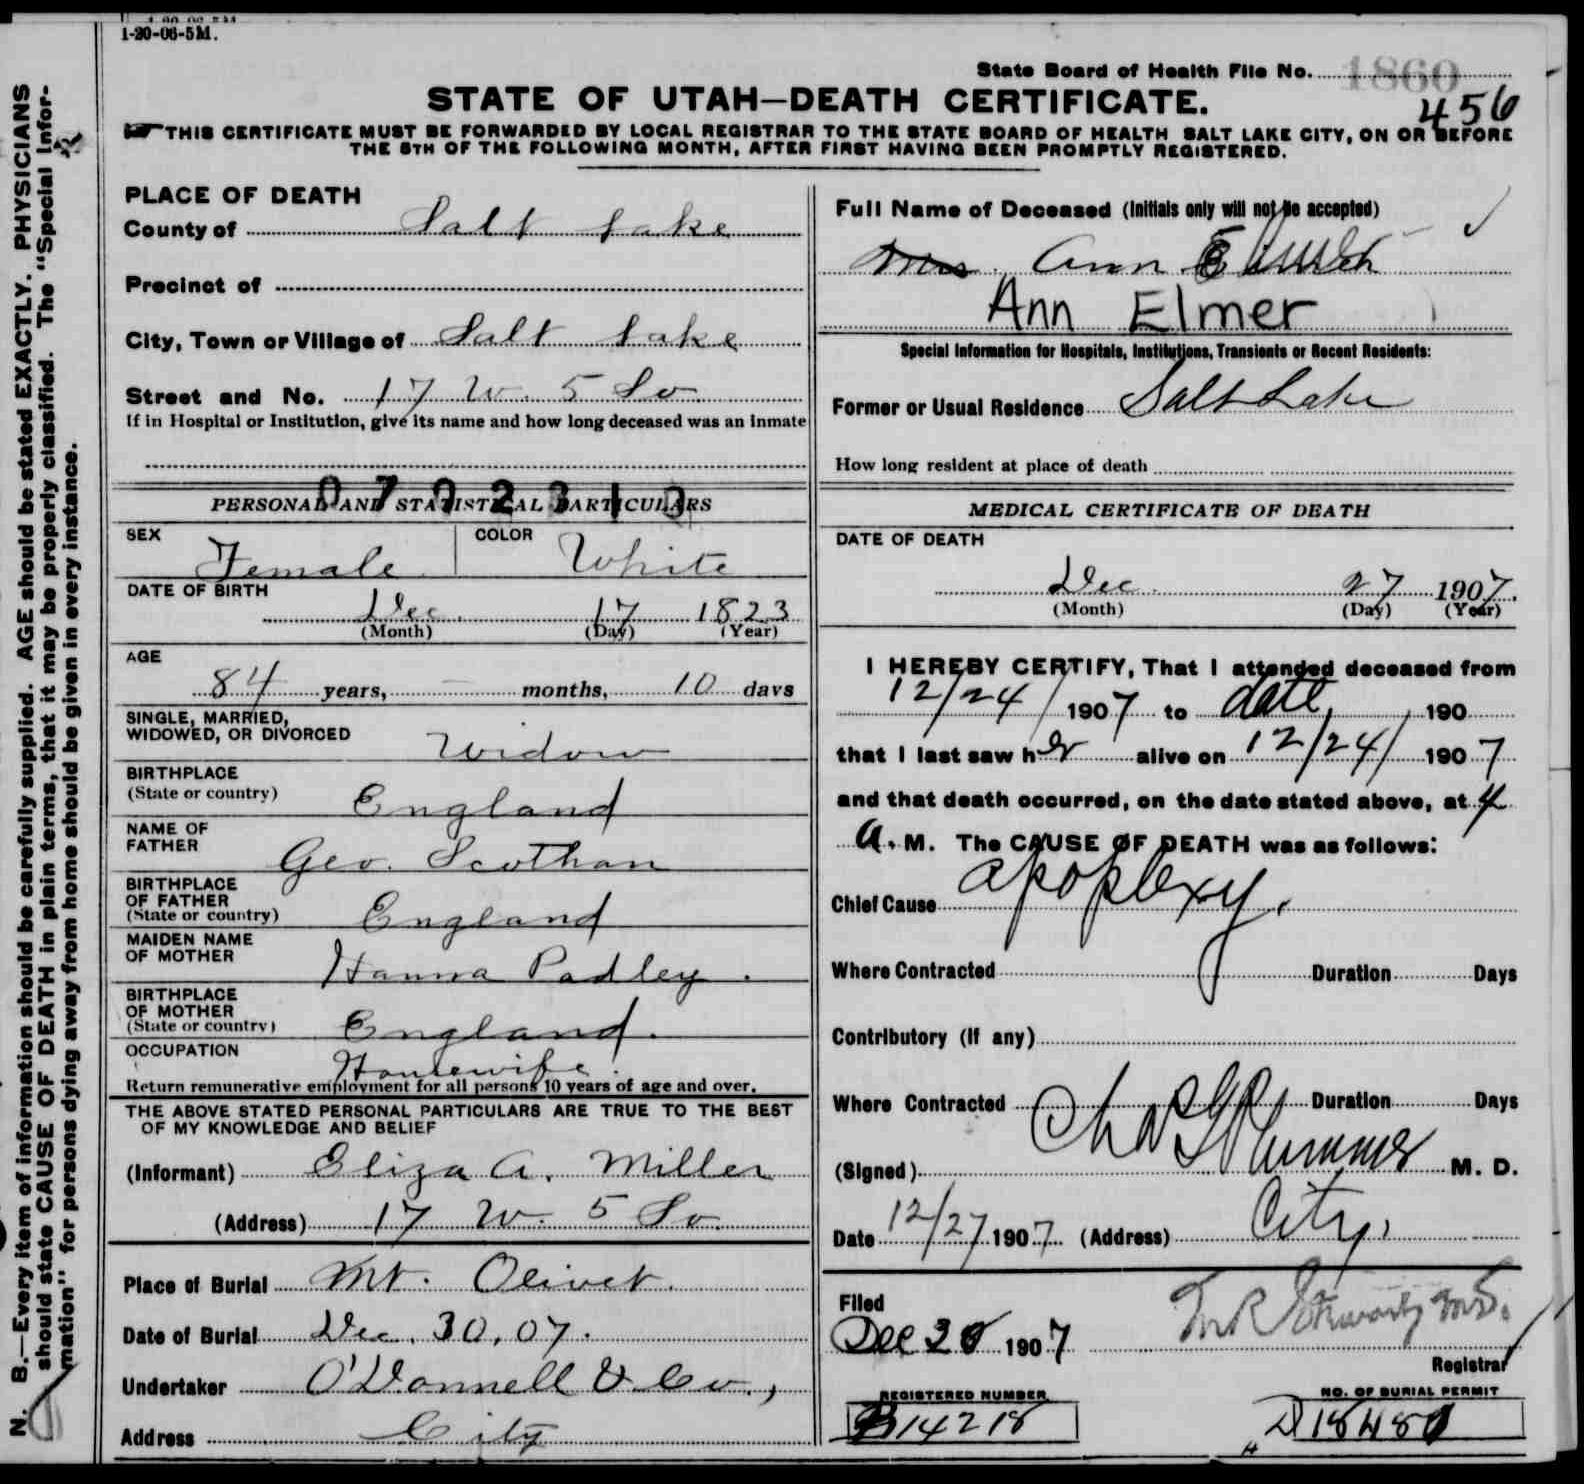 1-20-06-5M.
State Board of Health File No. 1860
456
STATE OF UTAH—DEATH CERTIFICATE.
THIS CERTIFICATE MUST BE FORWARDED BY LOCAL REGISTRAR TO THE STATE BOARD OF HEALTH SALT LAKE CITY, ON OR BEFORE
THE 5TH OF THE FOLLOWING MONTH, AFTER FIRST HAVING BEEN PROMPTLY REGISTERED.
N. B.—Every item of information should be carefully supplied. AGE should be stated EXACTLY. PHYSICIANS
should state CAUSE OF DEATH in plain terms, that it may be properly classified. The "Special Infor-
mation" for persons dying away from home should be given in every instance.
PLACE OF DEATH
County of Salt Lake
Precinct of
City, Town or Village of Salt Lake
Street and No. 17 W. 5 So
If in Hospital or Institution, give its name and how long deceased was an inmate
PERSONAL AND STATISTICAL PARTICULARS
SEX Female COLOR White
DATE OF BIRTH
Dec. 17 1823
(Month) (Day) (Year)
AGE
84 years, — months, 10 days
SINGLE, MARRIED,
WIDOWED, OR DIVORCED Widow
BIRTHPLACE
(State or country) England
NAME OF
FATHER Geo. Scothan
BIRTHPLACE
OF FATHER
(State or country) England
MAIDEN NAME
OF MOTHER Hanna Padley.
BIRTHPLACE
OF MOTHER
(State or country) England.
OCCUPATION Housewife.
Return remunerative employment for all persons 10 years of age and over.
THE ABOVE STATED PERSONAL PARTICULARS ARE TRUE TO THE BEST
OF MY KNOWLEDGE AND BELIEF
(Informant) Eliza A. Miller
(Address) 17 W. 5 So.
Place of Burial Mt. Olivet.
Date of Burial Dec. 30, 07.
Undertaker O'Donnell & Co.,
Address City
Full Name of Deceased (Initials only will not be accepted)
Mrs. Ann
Ann Elmer
Special Information for Hospitals, Institutions, Transients or Recent Residents:
Former or Usual Residence Salt Lake
How long resident at place of death
MEDICAL CERTIFICATE OF DEATH
DATE OF DEATH
Dec. 27 1907.
(Month) (Day) (Year)
I HEREBY CERTIFY, That I attended deceased from
12/24/ 1907 to date, 190
that I last saw her alive on 12/24/ 1907
and that death occurred, on the date stated above, at 4
A. M. The CAUSE OF DEATH was as follows:
Chief Cause apoplexy.
Where Contracted Duration Days
Contributory (if any)
Where Contracted Duration Days
(Signed) Chas G Plummer M. D.
Date 12/27 1907. (Address) City.
Filed
Dec 28 1907
Registrar
REGISTERED NUMBER
B14218
NO. OF BURIAL PERMIT